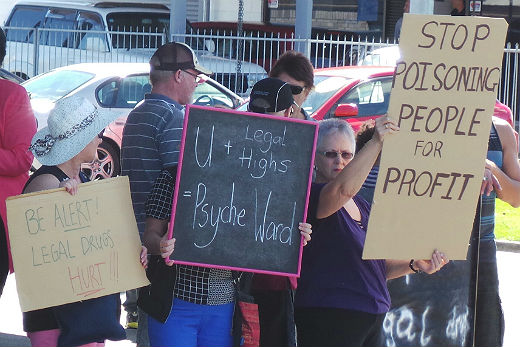 BE ALERT!
LEGAL DRUGS
HURT!!!
U + Legal
Highs
= Psyche Ward
STOP
POISONING
PEOPLE
FOR
PROFIT